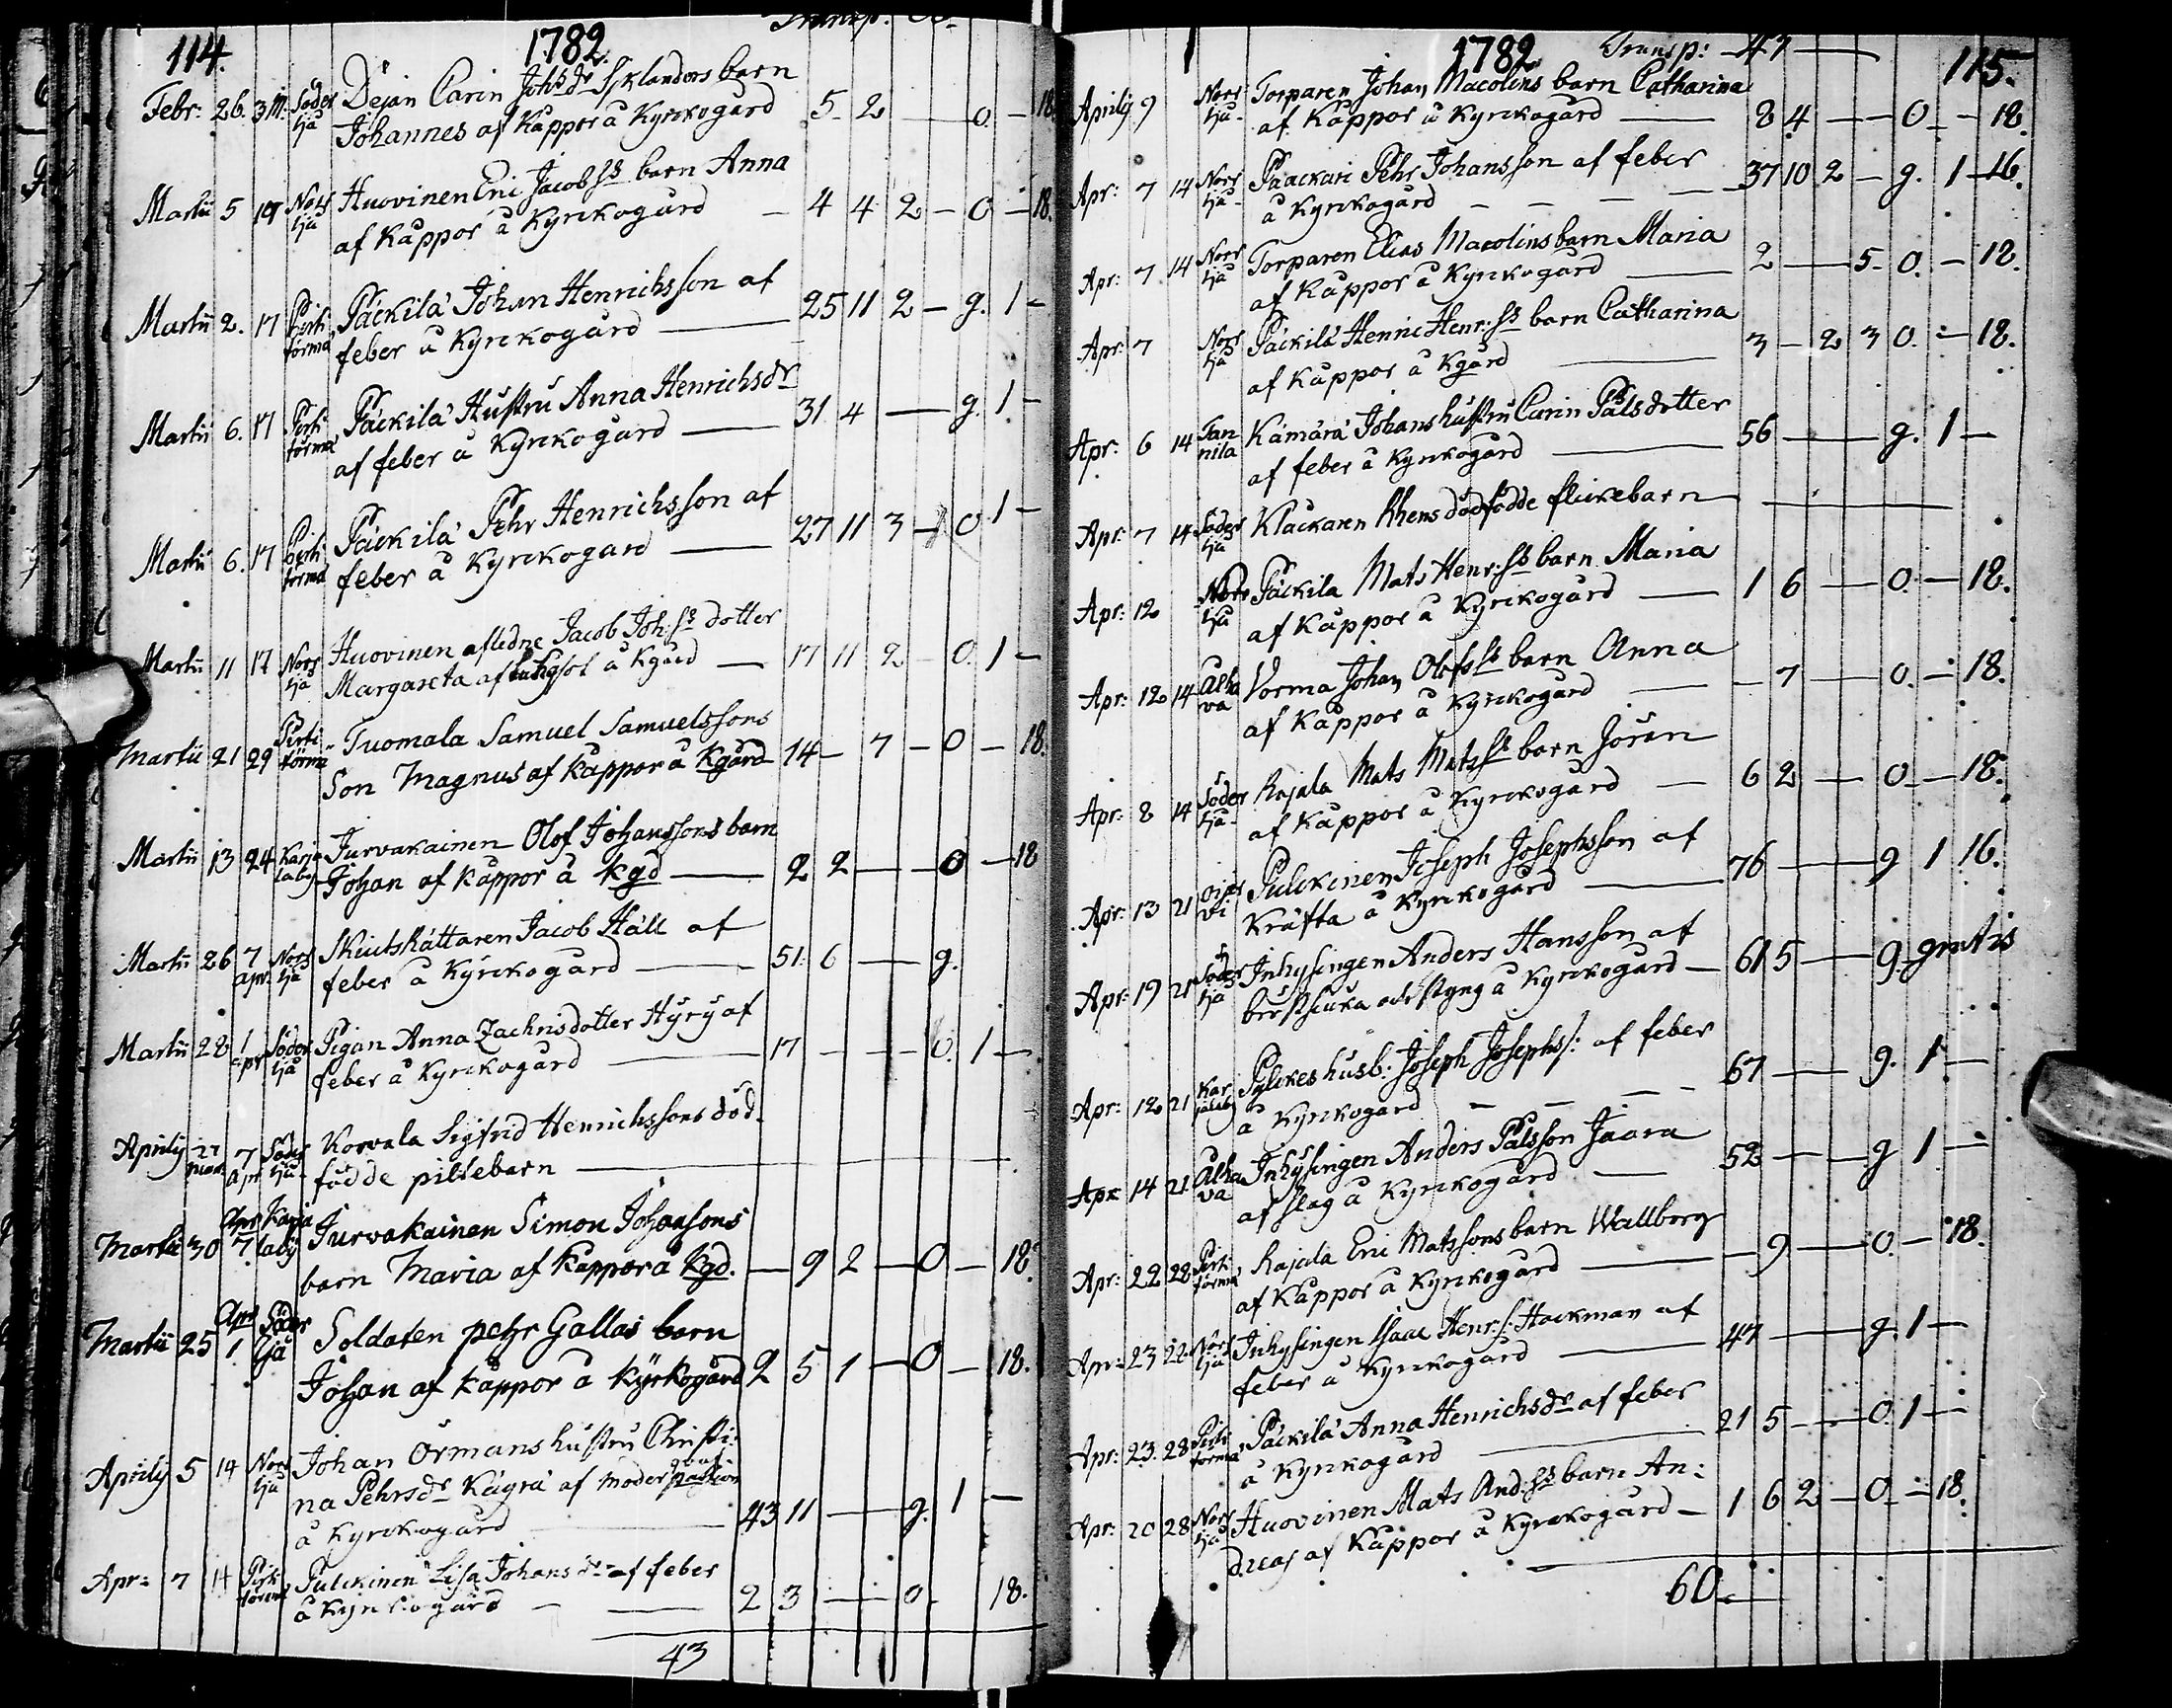 114.
1782.
Transp:
Febr: 26. 3 M. Söder ljå Dejan Carin Johsdr barn
Johannes af Kåppor å Kyrckogård 5 2 — 0. — 18.
Martii 5 17 Norr ljå Huovinen Eric Jacobss barn Anna
af Kåppor å Kyrckogård — 4 4 2 — 0 — 18.
Martii 2. 17 Pirti törmä Päckilä Johan Henrichsson af
feber å Kyrckogård — 25 11 2 — g. 1 —
Martii 6. 17 Pirti törmä Päckilä Hustru Anna Henrichsdr
af feber å Kyrckogård — 31 4 — g. 1 —
Martii 6. 17 Pirti törmä Päckilä Pehr Henrichsson af
feber å Kyrckogård — 27 11 3 — 0 1 —
Martii 11 17 Norr ljå Huovinen afledne Jacob Joh:ss dotter
Margareta af lungsot å Kgård — 17 11 2 — 0. 1 —
Martii 21 29 Pirti törmä Tuomala Samuel Samuelssons
Son Magnus af Kåppor å Kgård 14 — 7 — 0 — 18.
Martii 13 24 Karja laby Jurvakainen Olof Johanssons barn
Johan af Kåppor å kgd — 2 2 — 0 — 18
Martii 26 7 apr. Norr ljå Skiutshåttaren Jacob Häll af
feber å Kyrckogård — 51. 6 — g.
Martii 28 1 apr Söder ljå Pigan Anna Zachrisdotter Hyry af
feber å Kyrckogård — 17 — — — 0. 1 —
Aprilij 27 mar. 7 Apr Söder ljå Korvala Sigfrid Henrichssons död-
födde piltebarn —
Martii 30 Apr 7. Karja laby Jurvakainen Simon Johansons
barn Maria af Kåppor å Kgd. — 9 2 — 0 — 18.
Martii 25 Apr 1 Söder ljå Soldaten pehr Gallas barn
Johan af kåppor å kyrkogård 2 5 1 — 0 — 18.
Aprilij 5 14 Norr ljå Johan Örmans hustru Christi:
na Pehrsdr Kägrä af moder passion
å Kyrckogård — 43 11 — g. 1 —
Apr: 7 14 Pirti törmä Pulckinen Lisa Johansdr af feber
å Kyrckogård — 2 3 — 0. 18.
43
1782
Transp: — 47 —
115.
Aprilij 9 Norr ljå Torparen Johan Macolins barn Catharina
af Kåppor å Kyrckogård — 8 4 — 0 — 18.
Apr: 7 14 Norr ljå Paackari Pehr Johansson af feber
å Kyrckogård — 37 10 2 — g. 1 — 16.
Apr: 7 14 Norr ljå Torparen Elias Macolins barn Maria
af Kåppor å Kyrckogård — 2 — 5 0. — 18.
Apr: 7 Norr ljå Päckilä Henric Henr:ss barn Catharina
af Kåppor å Kgård — 3 — 2 3 0. — 18.
Apr: 6 14 Tan nila Kämärä Johans hustru Carin Pålsdotter
af feber å Kyrckogård — 56 — g. 1 —
Apr: 7 14 Söder ljå Klåckaren Rhens dödfödde flickebarn —
Apr: 12 Norr ljå Päckila Mats Henr:ss barn Maria
af Kåppor å Kyrckogård — 1 6 — 0. — 18.
Apr: 12 14 Alha va Vorma Johan Olofss barn Anna
af Kåppor å Kyrckogård — 7 — 0. — 18.
Apr: 8 14 Söder ljå Rajala Mats Matsss barn Jören
af Kåppor å Kyrckogård — 6 2 — 0 — 18.
Apr: 13 21 Oijar vi Pulckinen Joseph Josephsson af
Kräfta å Kyrckogård — 76 — g 1 16.
Apr: 19 21 Söder ljå Inhysingen Anders Hansson af
bröstsiuka och styng å Kyrckogård — 61 5 — g gratis
Apr: 12 21 Kar jalaby Pylckes husb: Joseph Josephs/: af feber
å Kyrckogård — 67 — g. 1 —
Apr 14 21. Alha va Inhysingen Anders Pålsson Jaara
af slag å Kyrckogård — 52 — g 1 —
Apr: 22 28 Pirti törmä Rajala Eric Matssons barn Wallborg
af Kåppor å Kyrckogård — 9 — 0 — 18.
Apr: 23 28 Norr ljå Inhysingen Isaac Henr:s: Hackman af
feber å Kyrckogård — 47 — g. 1 —
Apr: 23. 28 Pirti törmä Päckilä Anna Henrichsdr af feber
å Kyrckogård — 21 5 — 0. 1 —
Apr: 20 28 Norr ljå Huovinen Mats And:ss barn An:
dreas af Kåppor å Kyrckogård — 1 6 2 — 0 — 18.
60 —